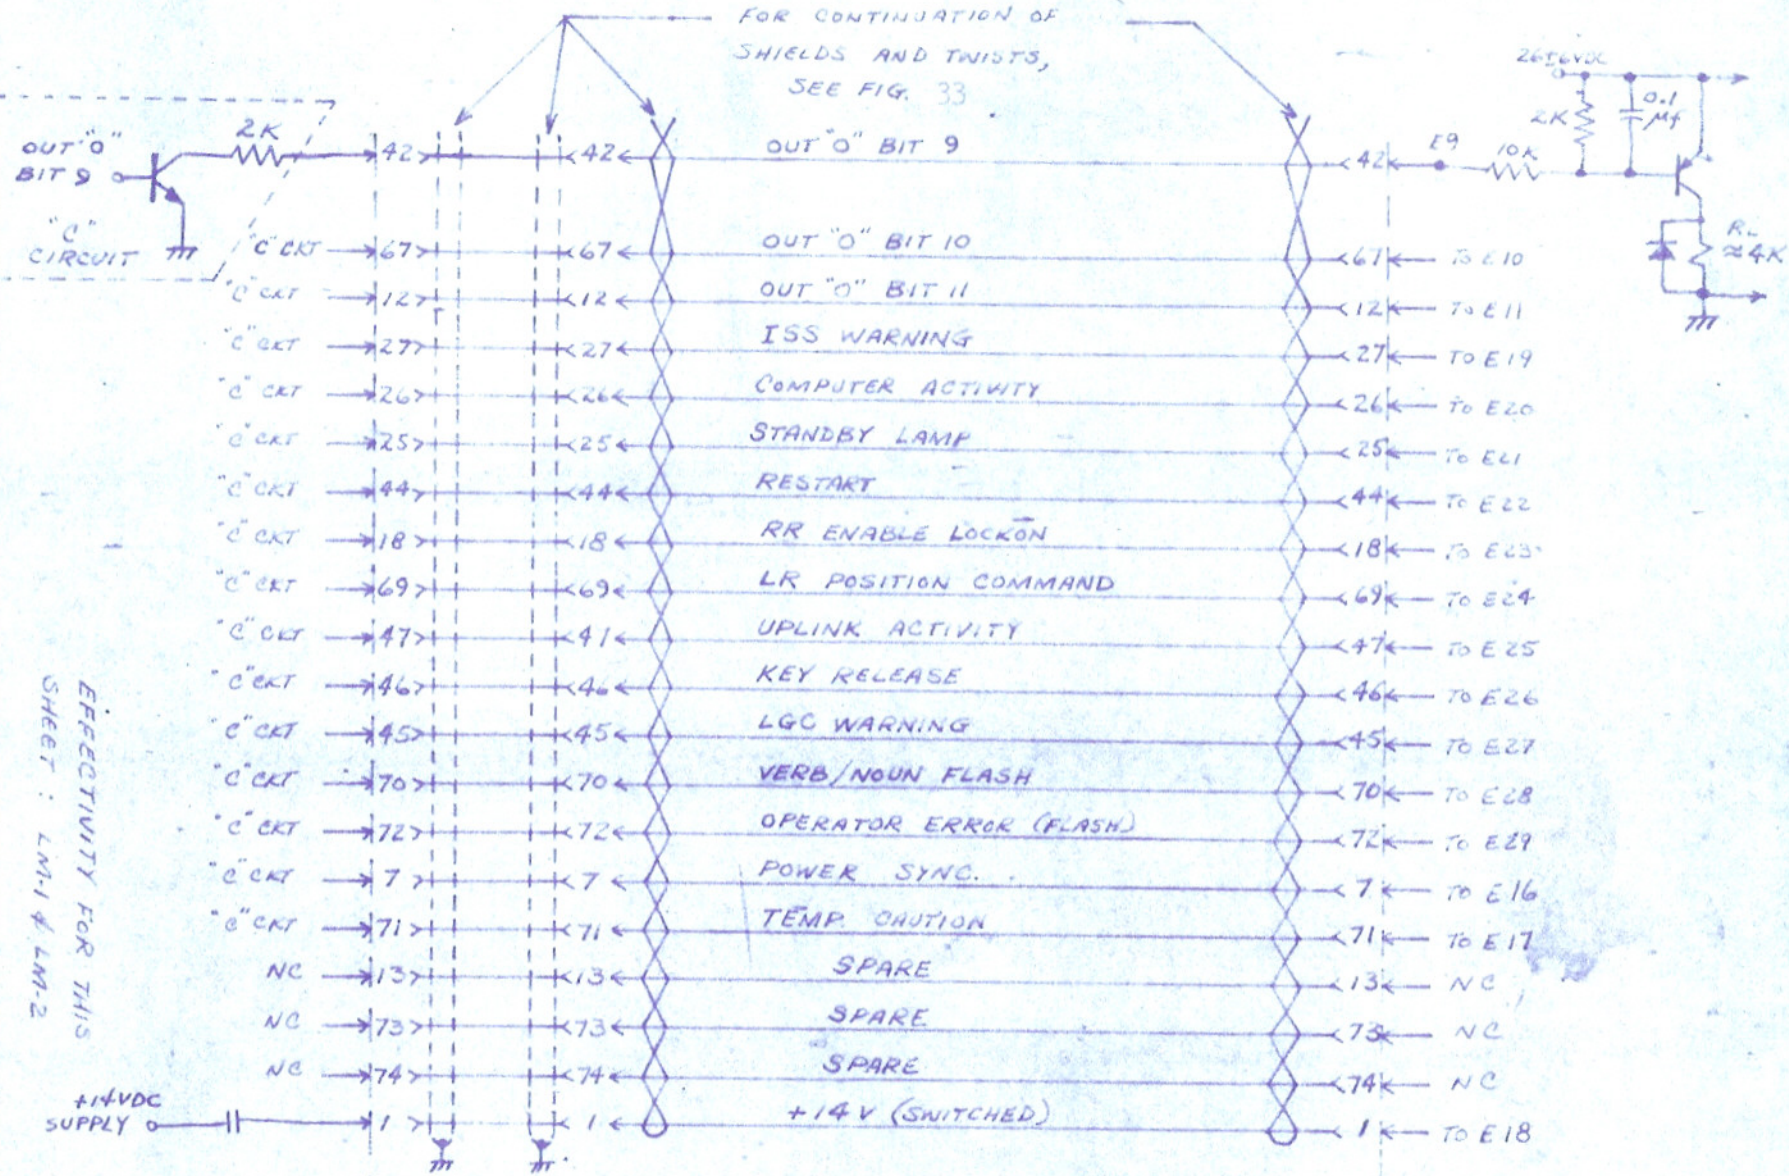 FOR CONTINUATION OF
SHIELDS AND TWISTS,
SEE FIG. 33
OUT "0" BIT 9
2K
"C" CIRCUIT
42 42 OUT "0" BIT 9 42 E9 10K 2K 0.1 μf
26±6VDC
RL ≈4K
"C" CKT 67 67 OUT "0" BIT 10 67 TO E10
"C" CKT 12 12 OUT "0" BIT 11 12 TO E11
"C" CKT 27 27 ISS WARNING 27 TO E19
"C" CKT 26 26 COMPUTER ACTIVITY 26 TO E20
"C" CKT 25 25 STANDBY LAMP 25 TO E21
"C" CKT 44 44 RESTART 44 TO E22
"C" CKT 18 18 RR ENABLE LOCKON 18 TO E23
"C" CKT 69 69 LR POSITION COMMAND 69 TO E24
"C" CKT 47 41 UPLINK ACTIVITY 47 TO E25
"C" CKT 46 46 KEY RELEASE 46 TO E26
"C" CKT 45 45 LGC WARNING 45 TO E27
"C" CKT 70 70 VERB/NOUN FLASH 70 TO E28
"C" CKT 72 72 OPERATOR ERROR (FLASH) 72 TO E29
"C" CKT 7 7 POWER SYNC. 7 TO E16
"C" CKT 71 71 TEMP. CAUTION 71 TO E17
NC 13 13 SPARE 13 NC
NC 73 73 SPARE 73 NC
NC 74 74 SPARE 74 NC
+14VDC SUPPLY 1 1 +14V (SWITCHED) 1 TO E18
EFFECTIVITY FOR THIS
SHEET: LM-1 & LM-2